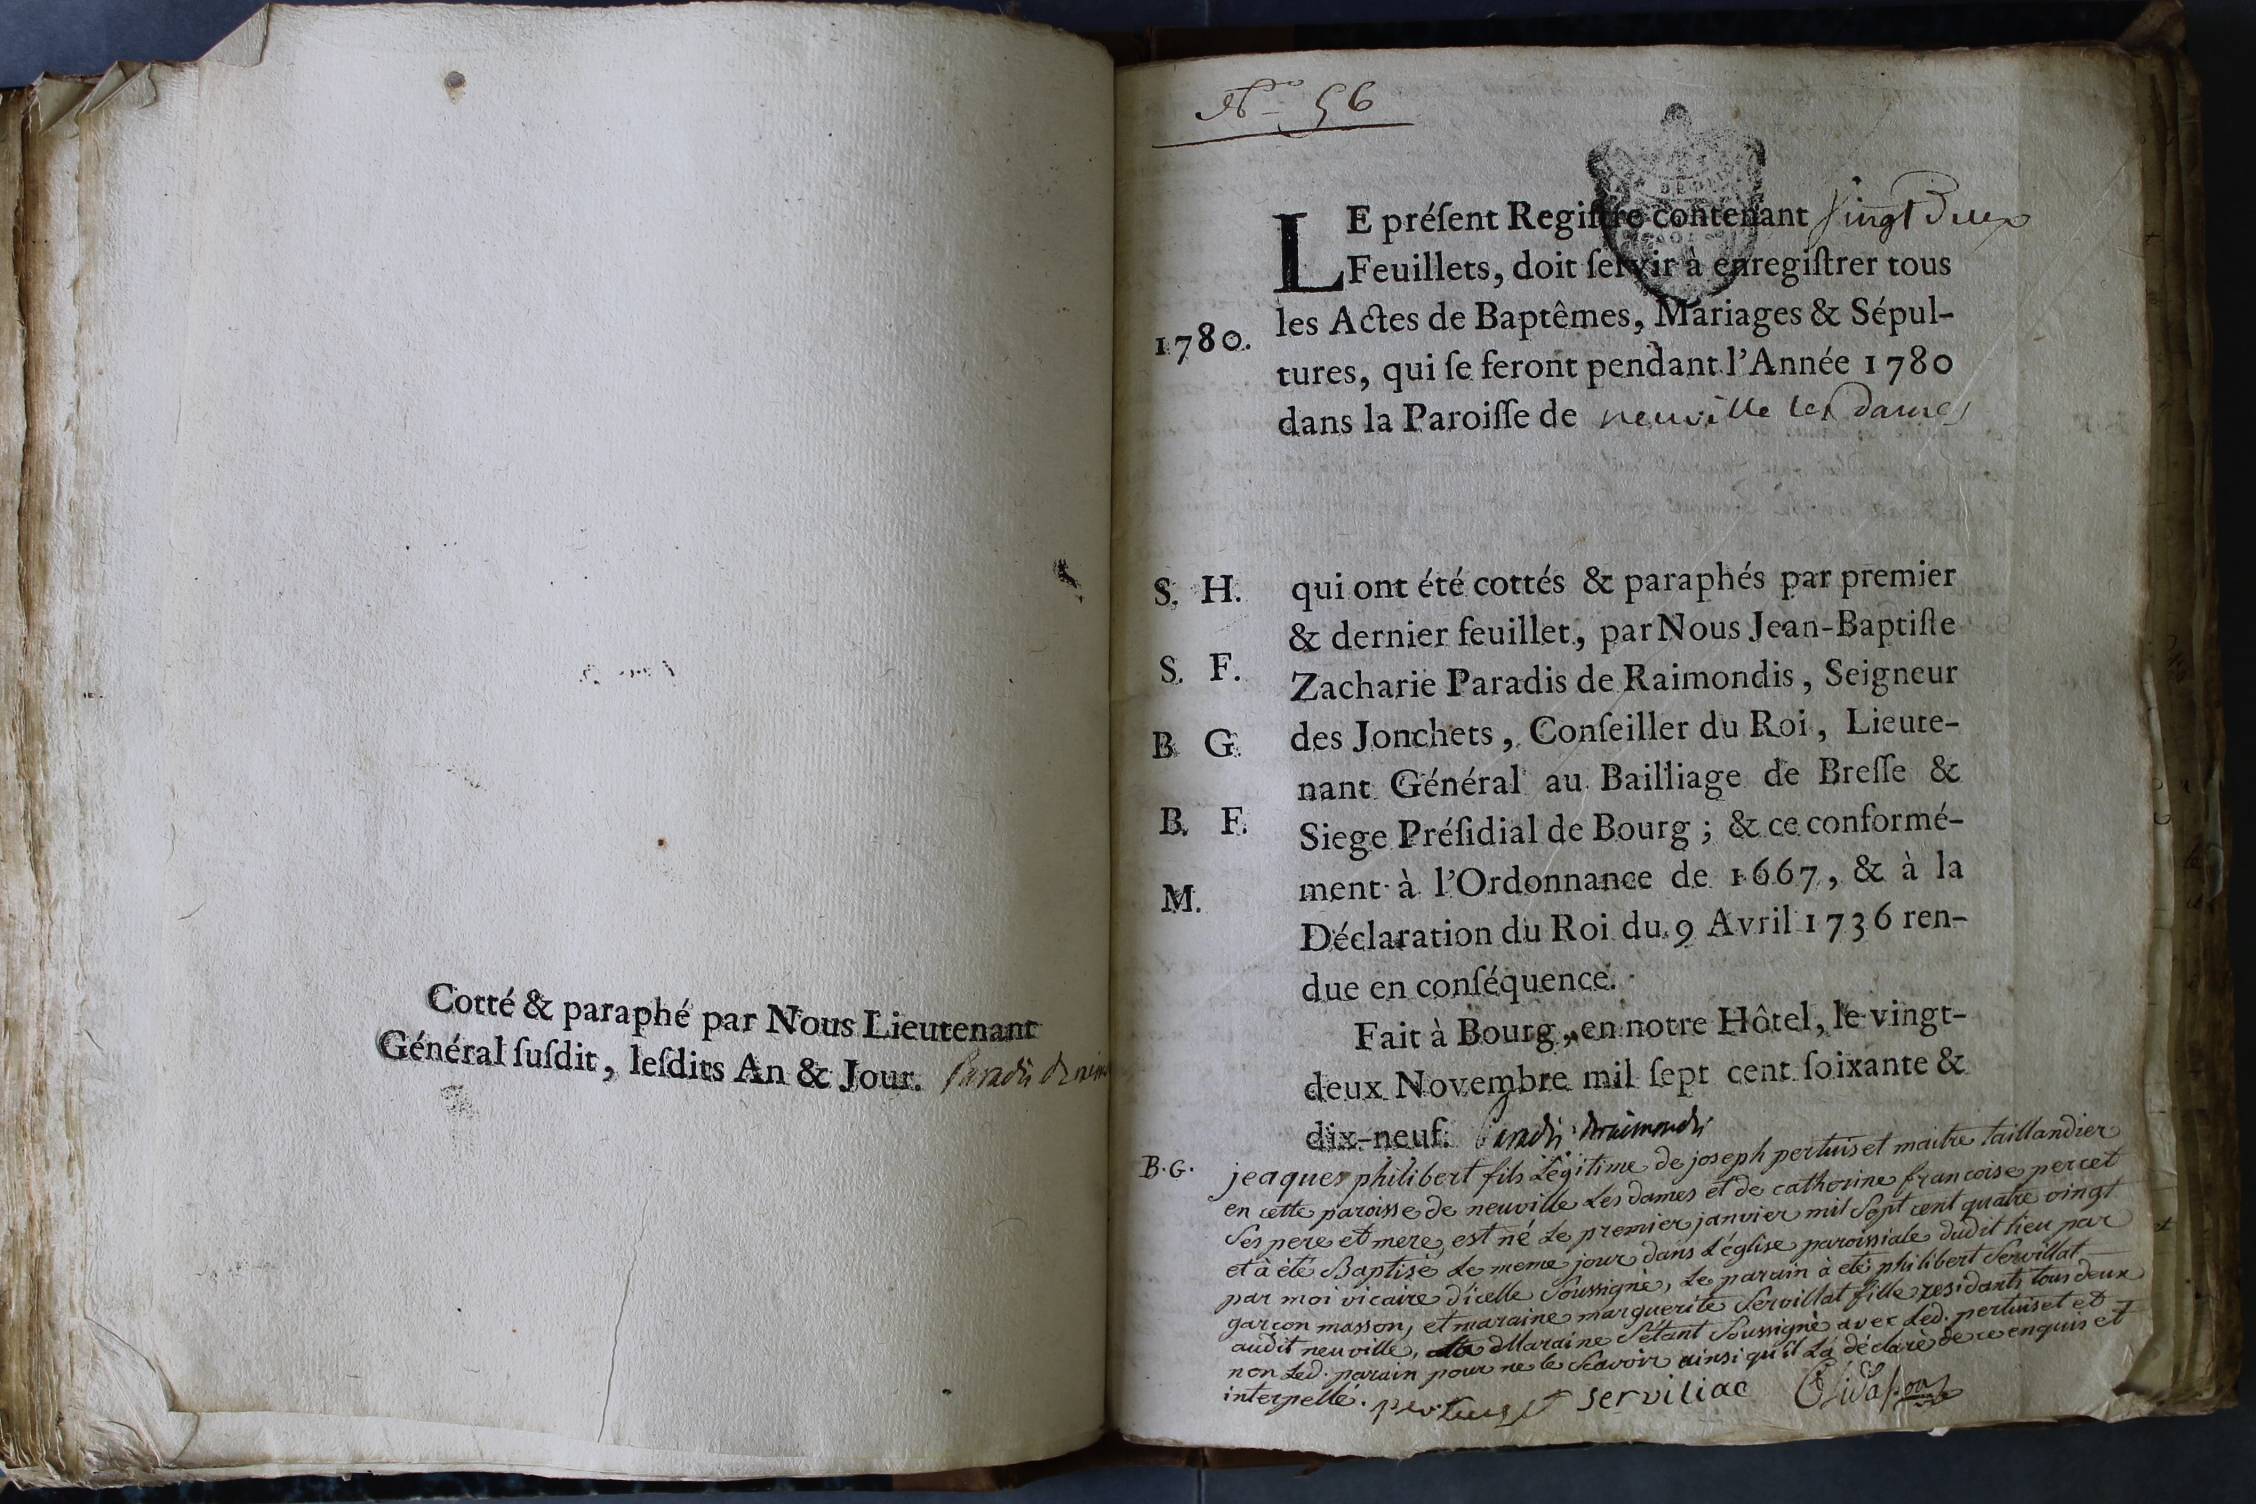 Cotté & paraphé par Nous Lieutenant
Général ſuſdit, leſdits An & Jour. Paradis de
No 56
LE préſent Regiſtre contenant vingt Deux
Feuillets, doit ſervir à enregiſtrer tous
les Actes de Baptêmes, Mariages & Sépul-
1780.
tures, qui ſe feront pendant l'Année 1780
dans la Paroiſſe de neuville les dames
S. H.
qui ont été cottés & paraphés par premier
& dernier feuillet, par Nous Jean-Baptiſte
S. F.
Zacharie Paradis de Raimondis, Seigneur
B G
des Jonchets, Conſeiller du Roi, Lieute-
nant Général au Bailliage de Breſſe &
B. F.
Siege Préſidial de Bourg; & ce conformé-
ment à l'Ordonnance de 1667, & à la
M.
Déclaration du Roi du 9 Avril 1736 ren-
due en conſéquence.
Fait à Bourg, en notre Hôtel, le vingt-
deux Novembre mil ſept cent ſoixante &
dix-neuf. Paradis deraimondis
B. G.
jeaques philibert fils Légitime de joseph pertuiset maitre taillandier
en cette paroisse de neuville Les dames et de catherine francoise percet
Ses pere et mere, est né Le premier janvier mil Sept cent quatre vingt
et à été Baptisé Le meme jour dans L'église paroissiale dudit lieu par
par moi vicaire d'icelle Soussigné, Le parain à eté philibert Servillat
garcon masson, et maraine marguerite Servillat fille residants tous deux
audit neuville, Maraine S'étant Soussigné avec Led. pertuiset et
non Led. parain pour ne le Scavoir ainsi qu'il L'à déclaré de ce enquis et
interpellé. pertuiset serviliac